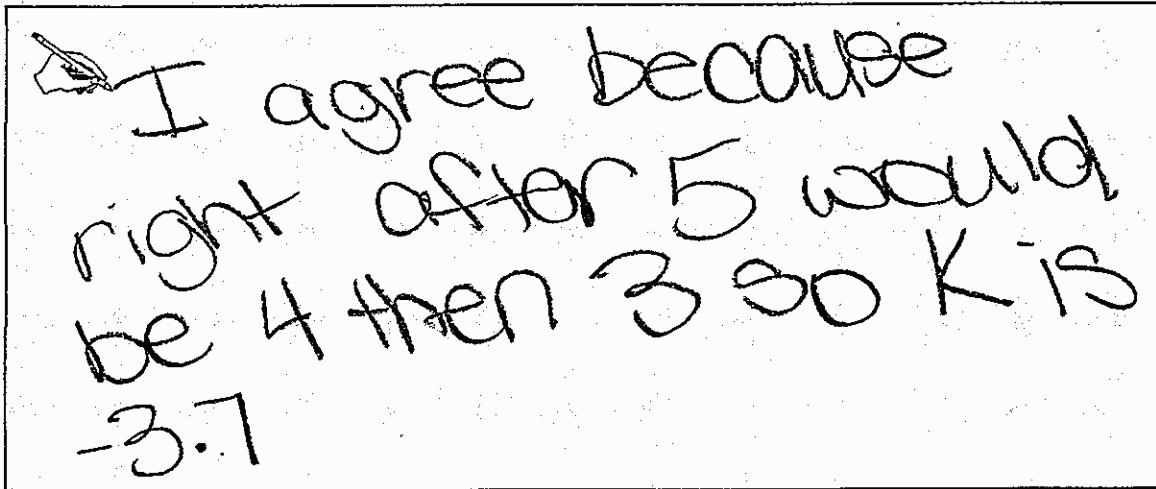 I agree because
right after 5 would
be 4 then 3 so K is
-3.7